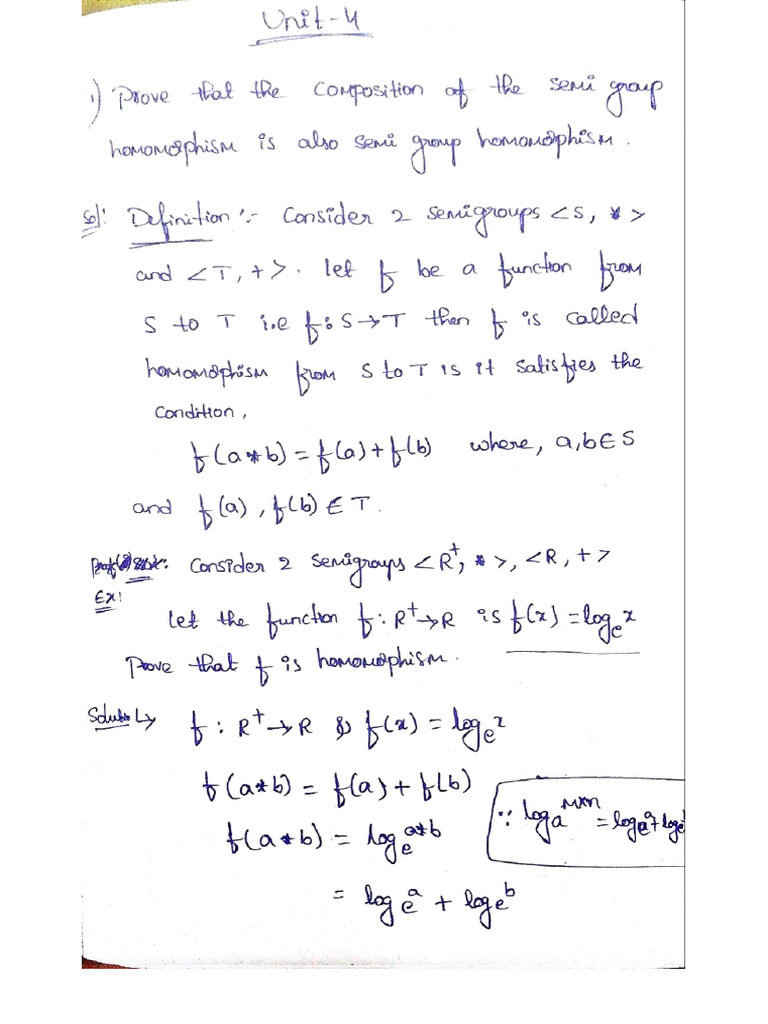 Unit-4
1) Prove that the composition of the semi group
homomorphism is also semi group homomorphism.
Sol: Definition :- Consider 2 semigroups <S, *>
and <T, +>. let f be a function from
S to T i.e f: S→T then f is called
homomorphism from S to T is it satisfies the
condition,
f(a*b) = f(a)+f(b) where, a,b∈S
and f(a), f(b) ∈ T.
Consider 2 semigroups <R⁺, *>, <R, +>
Ex:
let the function f: R⁺→R is f(x) = logₑˣ
Prove that f is homomorphism.
Solution ↳ f : R⁺→R f(x) = logₑˣ
f(a*b) = f(a) + f(b)
f(a*b) = logₑᵃ*ᵇ
∵ logₐᵐˣⁿ =
= logₑᵃ + logₑᵇ